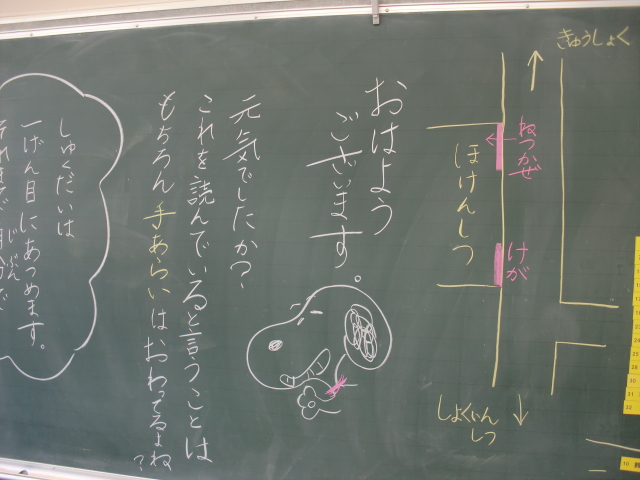 きゅうしょく
ねつかぜ
けが
ほけんしつ
しょくいん
しつ
おはよう
ございます。
元気でしたか?
これを読んでいると言うことは
もちろん手あらいはおわってるよね?
しゅくだいは
一げん目にあつめます。